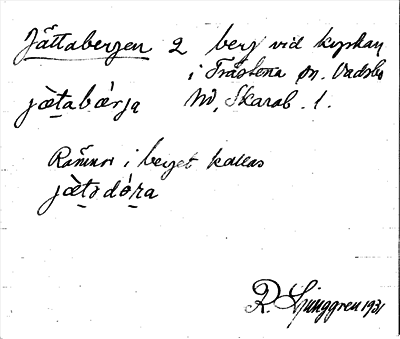 Jättabergen 2 berg vid kyrkan
i Trästena sn. Vadsbo
jæ̀tabǽrja hd, Skarab. l.
Rämnor i berget kallas
jæ̀tədǿra
R. Ljunggren 1931